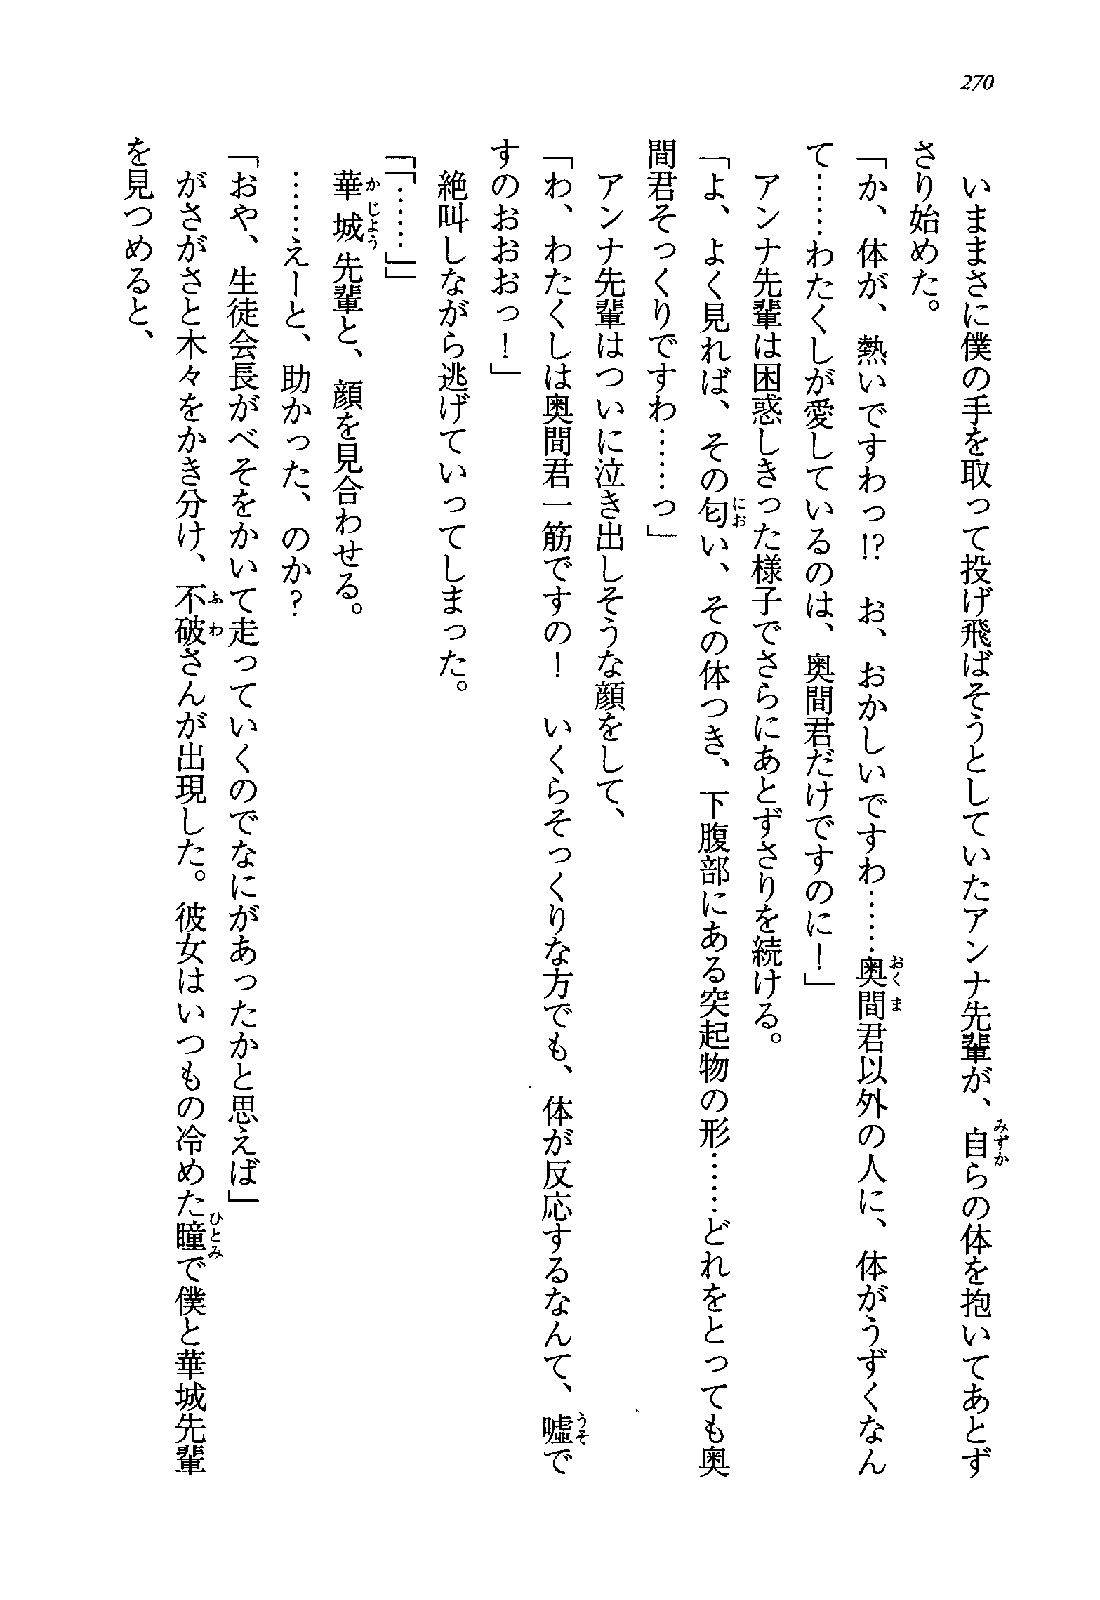 270
　いままさに僕の手を取って投げ飛ばそうとしていたアンナ先輩が、自らの体を抱いてあとず
さり始めた。
「か、体が、熱いですわっ!?　お、おかしいですわ……奥間君以外の人に、体がうずくなん
て……わたくしが愛しているのは、奥間君だけですのに！」
　アンナ先輩は困惑しきった様子でさらにあとずさりを続ける。
「よ、よく見れば、その匂い、その体つき、下腹部にある突起物の形……どれをとっても奥
間君そっくりですわ……っ」
　アンナ先輩はついに泣き出しそうな顔をして、
「わ、わたくしは奥間君一筋ですの！　いくらそっくりな方でも、体が反応するなんて、嘘で
すのおおおっ！」
　絶叫しながら逃げていってしまった。
「「……」」
　華城先輩と、顔を見合わせる。
　……えーと、助かった、のか？
「おや、生徒会長がべそをかいて走っていくのでなにがあったかと思えば」
　がさがさと木々をかき分け、不破さんが出現した。彼女はいつもの冷めた瞳で僕と華城先輩
を見つめると、